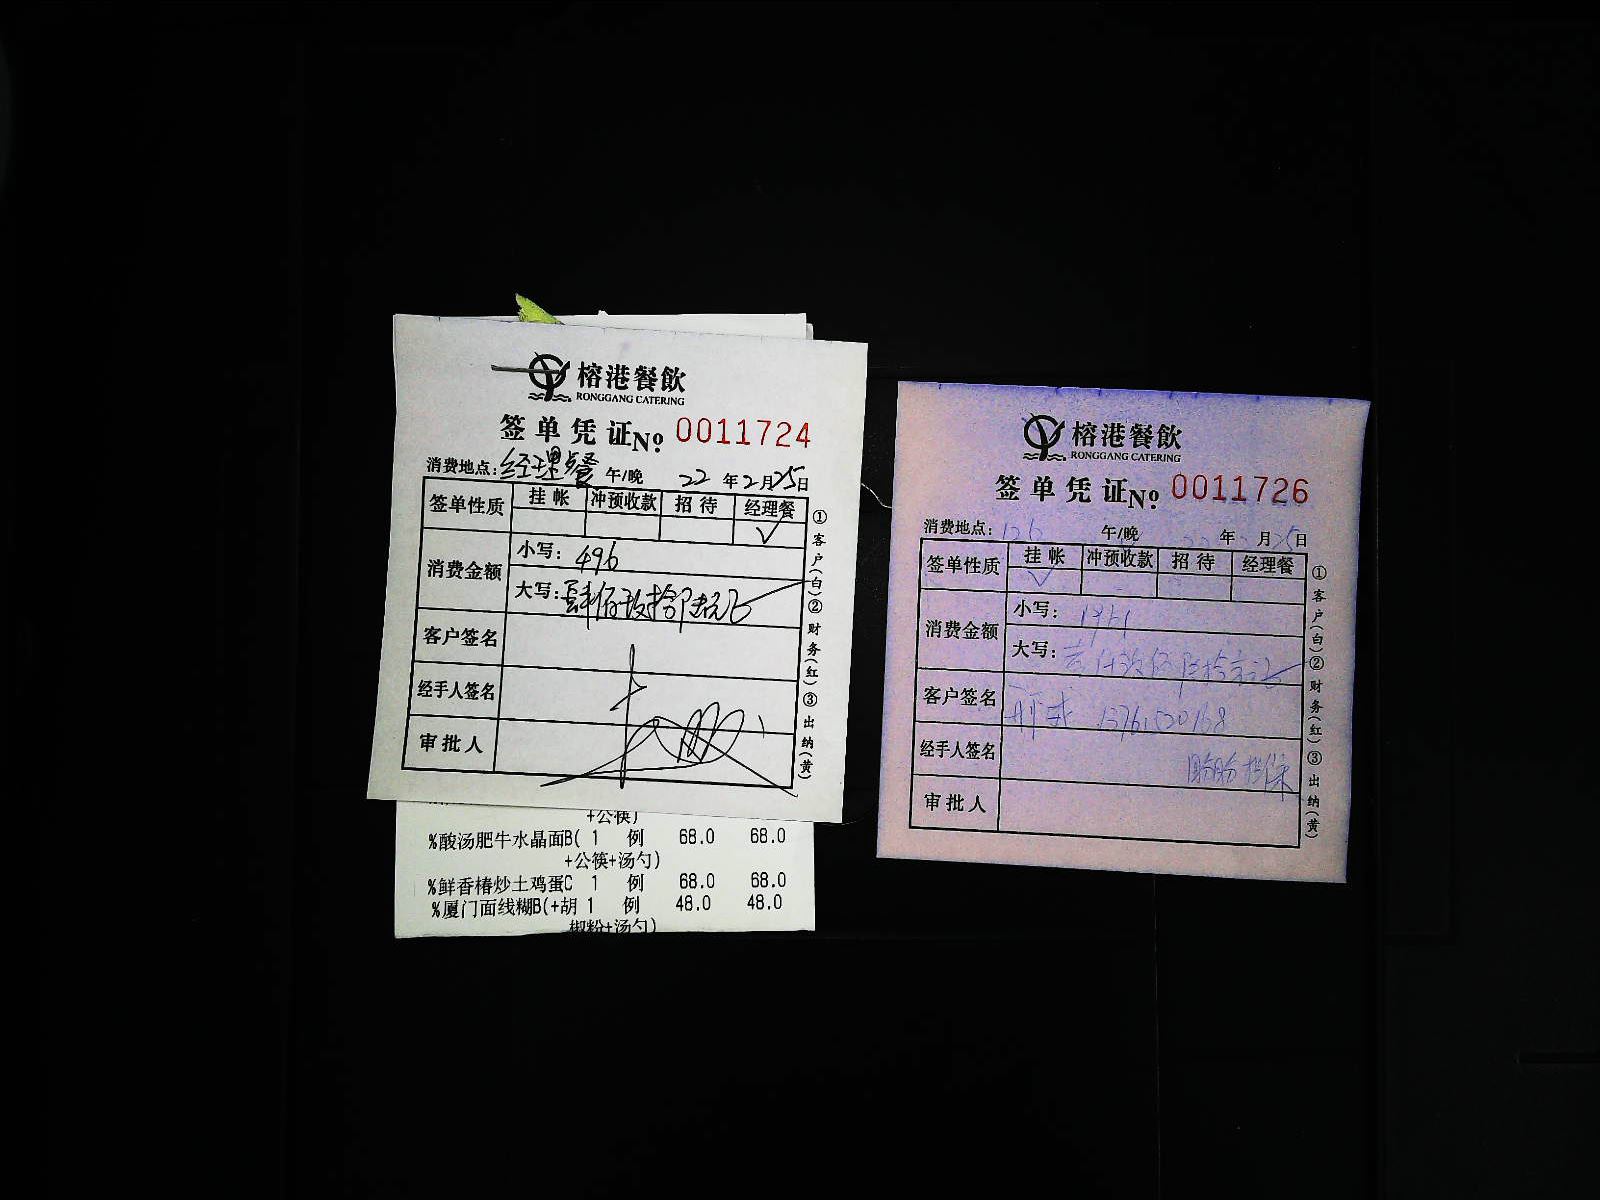 榕港餐飲
RONGGANG CATERING
签单凭证 No. 0011724
消费地点:经理餐 午/晚 22年2月25日
签单性质 挂帐 冲预收款 招待 经理餐
✓
消费金额 小写: 496
大写:肆佰玖拾陆元正
客户签名
经手人签名
审批人
①客户(白)②财务(红)③出纳(黄)
+公筷)
%酸汤肥牛水晶面B( 1 例 68.0 68.0
+公筷+汤勺)
%鲜香椿炒土鸡蛋C 1 例 68.0 68.0
%厦门面线糊B(+胡 1 例 48.0 48.0
椒粉+汤勺)
榕港餐飲
RONGGANG CATERING
签单凭证 No. 0011726
消费地点: 126 午/晚 22年 月25日
签单性质 挂帐 冲预收款 招待 经理餐
✓
消费金额 小写:
大写:
客户签名
经手人签名
审批人
①客户(白)②财务(红)③出纳(黄)